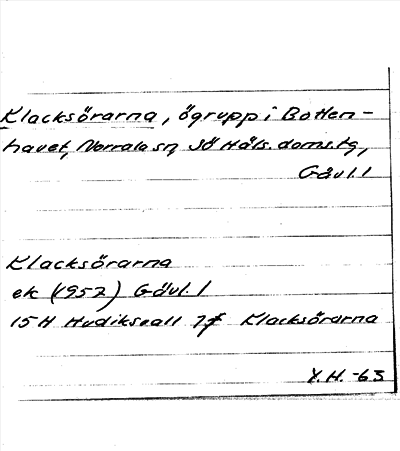 Klacksörarna, ögrupp i Botten-
havet, Norrala sn, SÖ Häls. doms. tg,
Gävl. l
Klacksörarna
ek (1957) Gävl. l
15H Hudiksvall 7f Klacksörarna
Y.H. -63